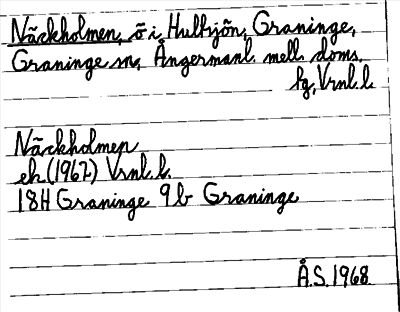 Näckholmen, ö i Hultsjön, Graninge,
Graninge sn, Ångermanl. mell. doms.
tg, Vrnl. l.
Näckholmen
ek (1967) Vrnl. l.
18H Graninge 9b Graninge
Å.S. 1968